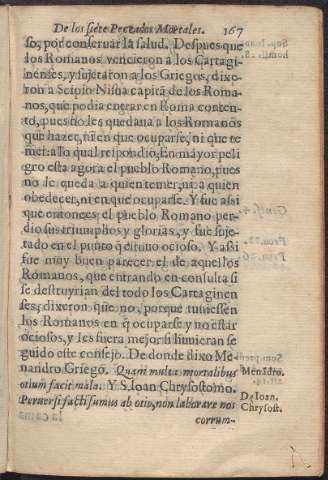 De los siete Peccados Mortales. 167
so, por conseruar la salud. Despues que
los Romanos vencieron a los Cartagi-
nenses, y sujetaron a los Griegos, dixe-
ron a Scipio Nisua capitã de los Roma-
nos, que podia entrar en Roma conten-
to, pues no les quedaua a los Romanos
que hazer, ni en que ocuparse, ni que te
mer: a lo qual respondio, En mayor peli
gro esta agora el pueblo Romano, pues
no le queda a quien temer, ni a quien
obedecer, ni en que ocuparse. Y fue assi
que entonces el pueblo Romano per-
dio sus triumphos y glorias, y fue suje-
tado en el punto q̃ estuuo ocioso. Y assi
fue muy buen parecer el de aquellos
Romanos, que entrando en consulta si
se destruyrian del todo los Cartaginen
ses, dixeron que no, porque tuuiessen
los Romanos en q̃ ocuparse y no estar
ociosos, y les fuera mejor si huuieran se
guido este consejo. De donde dixo Me-
nandro Griego. Quam multa mortalibus
otium facit mala. Y S. Ioan Chrysostomo.
Peruersi factisumus ab otio, non laborare nos
corrum-
Menãdro.
D. Ioan.
Chrysost.